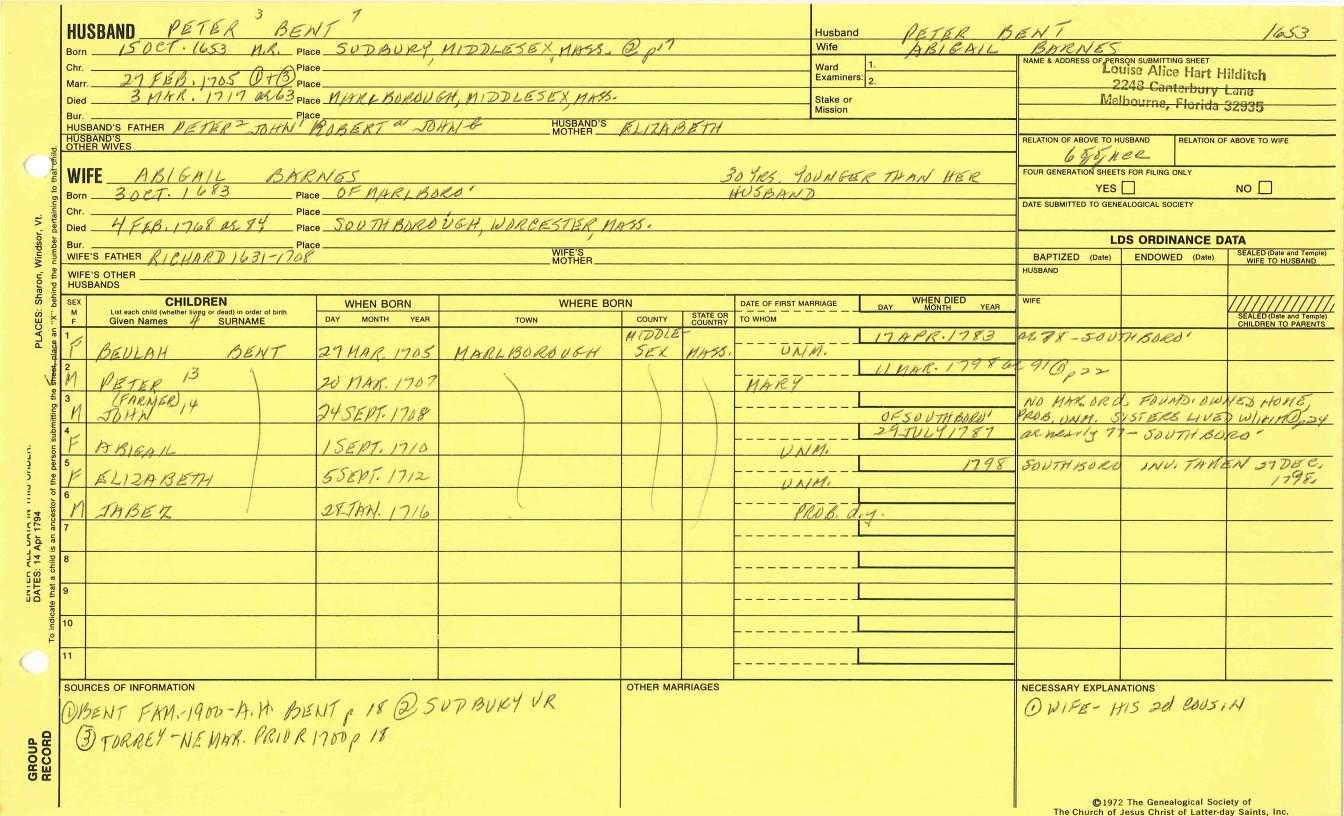 HUSBAND PETER 3 BENT 7
Born 15 OCT. 1653 M.R. Place SUDBURY, MIDDLESEX, MASS. ② p17
Chr. Place
Marr. 27 FEB. 1705 ①+③ Place
Died 3 MAR. 1717 ae 63 Place MARLBOROUGH, MIDDLESEX, MASS.
Bur. Place
HUSBAND'S FATHER PETER 2 JOHN 1 ROBERT a JOHN b HUSBAND'S MOTHER ELIZABETH
HUSBAND'S OTHER WIVES
WIFE ABIGAIL BARNES 30 YRS. YOUNGER THAN HER
Born 3 OCT. 1683 Place OF MARLBORO' HUSBAND
Chr. Place
Died 4 FEB. 1768 ae 84 Place SOUTHBOROUGH, WORCESTER, MASS.
Bur. Place
WIFE'S FATHER RICHARD 1631-1708 WIFE'S MOTHER
WIFE'S OTHER HUSBANDS
Husband PETER BENT 1653
Wife ABIGAIL BARNES
Ward Examiners: 1.
2.
Stake or Mission
NAME & ADDRESS OF PERSON SUBMITTING SHEET
Louise Alice Hart Hilditch
2248 Canterbury Lane
Melbourne, Florida 32935
RELATION OF ABOVE TO HUSBAND RELATION OF ABOVE TO WIFE
FOUR GENERATION SHEETS FOR FILING ONLY
YES NO
DATE SUBMITTED TO GENEALOGICAL SOCIETY
LDS ORDINANCE DATA
BAPTIZED (Date) ENDOWED (Date) SEALED (Date and Temple) WIFE TO HUSBAND
HUSBAND
WIFE
SEALED (Date and Temple) CHILDREN TO PARENTS
SEX M F CHILDREN WHEN BORN WHERE BORN DATE OF FIRST MARRIAGE WHEN DIED
List each child (whether living or dead) in order of birth
Given Names 4 SURNAME DAY MONTH YEAR TOWN COUNTY STATE OR COUNTRY TO WHOM DAY MONTH YEAR
1 F BEULAH BENT 27 MAR. 1705 MARLBOROUGH MIDDLE-SEX MASS. UNM. 17 APR. 1783 ae 78 - SOUTHBORO'
2 M PETER 13 20 MAR. 1707 MARY 11 MAR. 1798 ae 91 ① p22
3 M (FARMER) JOHN 14 24 SEPT. 1708 OF SOUTHBORO' NO MAR. OR d. FOUND. OWNED HOME,
PROB. UNM. SISTERS LIVED W/HIM ① p24
4 F ABIGAIL 1 SEPT. 1710 UNM. 29 JULY 1787 ae nearly 77 - SOUTHBORO'
5 F ELIZABETH 5 SEPT. 1712 UNM. 1798 SOUTHBORO INV. TAKEN 27 DEC. 1798.
6 M JABEZ 28 JAN. 1716 PROB. d.y.
7
8
9
10
11
SOURCES OF INFORMATION
① BENT FAM.-1900-A.H. BENT p 18 ② SUDBURY VR
③ TORREY - NE MAR. PRIOR 1700 p 18
OTHER MARRIAGES
NECESSARY EXPLANATIONS
① WIFE - HIS 2d COUSIN
©1972 The Genealogical Society of
The Church of Jesus Christ of Latter-day Saints, Inc.
GROUP RECORD
DATES: 14 Apr 1794
PLACES: Sharon, Windsor, Vt.
To indicate that a child is an ancestor of the person submitting the sheet, place an "X" behind the number pertaining to that child.